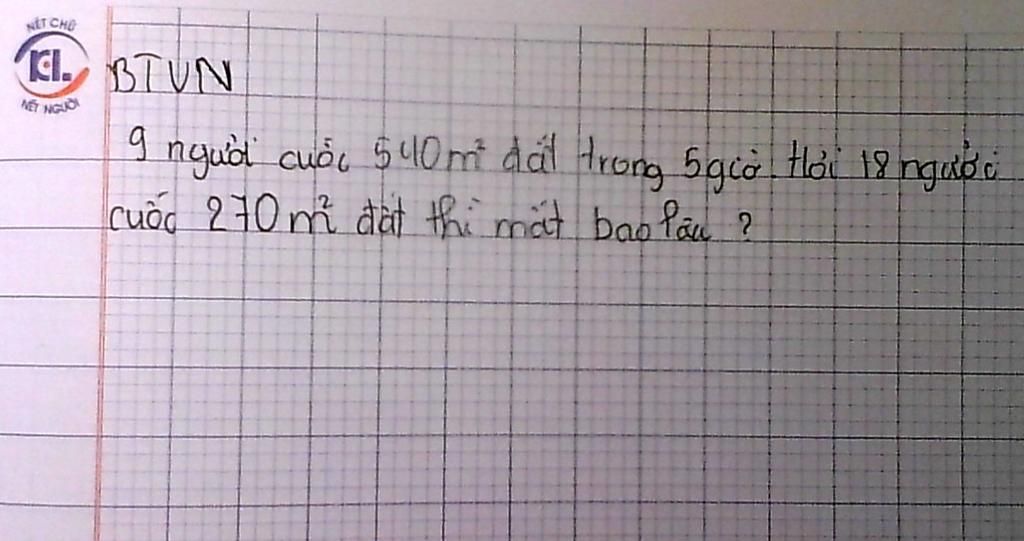 NÉT CHỮ
KL
NẾT NGƯỜI
BTVN
9 người cuốc 540m² đất trong 5 giờ. Hỏi 18 người
cuốc 270m² đất thì mất bao lâu ?